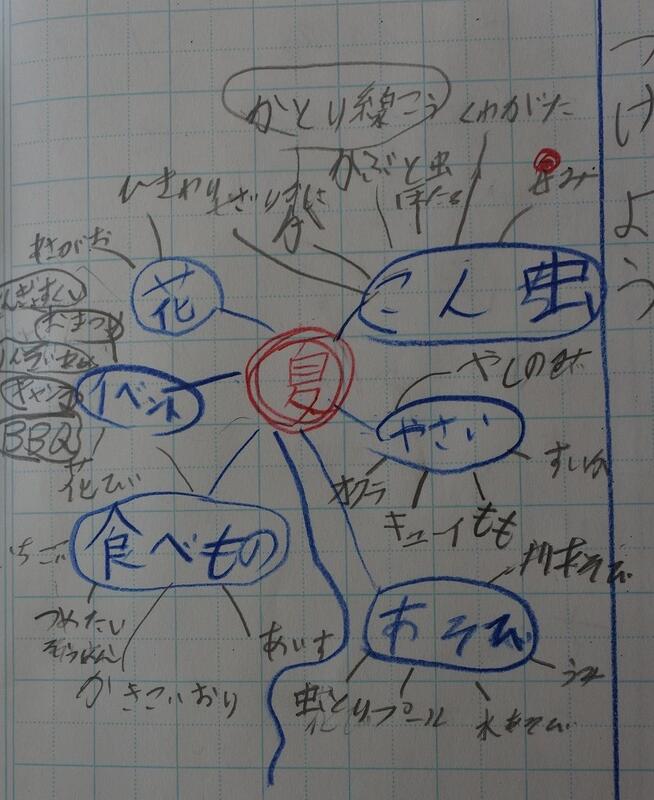 つけよう
かとり線こう
くわがた
かぶと虫
ひまわり
ざりがに
せみ
あさがお
花
こん虫
おまつり
夏
キャンプ
イベント
やしのみ
BBQ
やさい
すいか
花び
オクラ
キューイ
もも
いちご
食べもの
川あそび
つめたい
そうめん
あいす
あそび
うみ
かきごおり
虫とり
プール
水あそび